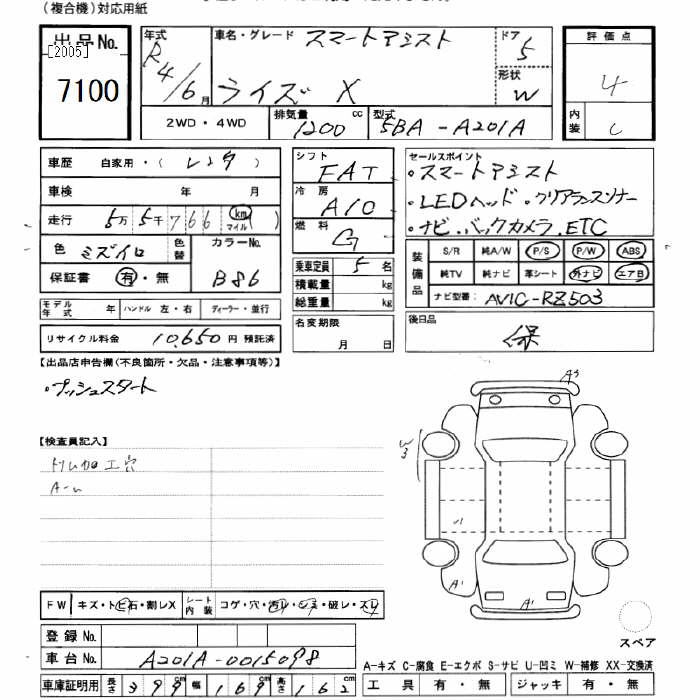 (複合機)対応用紙
出品No.
[2005]
7100
年式 R4/6月
車名・グレード スマートアシスト
ライズ X
ドア 5
形状 W
2WD・4WD
排気量 1200 cc
型式 5BA-A201A
評価点 4
内装 C
車歴 自家用・(レンタ)
車検 年 月
走行 5万5千766 km マイル ( )
色 ミズイロ 色替 カラーNo. B86
保証書 有・無
モデル年式 年 ハンドル 左・右 ディーラー・並行
リサイクル料金 10,650 円 預託済
シフト FAT
冷房 A/C
燃料 G
乗車定員 5 名
積載量 kg
総重量 kg
名変期限
月 日
セールスポイント
・スマートアシスト
・LEDヘッド・クリアランスソナー
・ナビ・バックカメラ.ETC
装備品
S/R 純A/W P/S P/W ABS
純TV 純ナビ 革シート 外ナビ エアB
ナビ型番: AVIC-RZ503
後日品
保
【出品店申告欄(不良箇所・欠品・注意事項等)】
・プッシュスタート
【検査員記入】
トリム加工穴
A3
W3
A1
A1
FW キズ・トビ石・割レX シート内装 コゲ・穴・汚レ・シミ・破レ・スレ
登録No.
車台No. A201A-0015098
車庫証明用 長さ 399cm 幅 169cm 高さ 162
スペア
A-キズ C-腐食 E-エクボ S-サビ U-凹ミ W-補修 XX-交換済
工具 有・無 ジャッキ 有・無